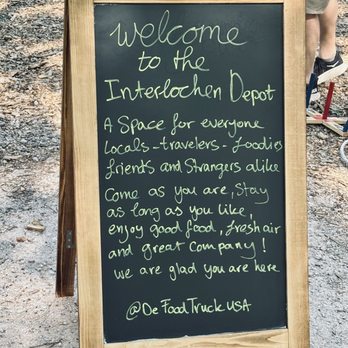 Welcome
to the
Interlochen Depot
A Space for everyone
Locals-travelers-foodies
friends and Strangers alike
Come as you are, Stay
as long as you like,
enjoy good food, fresh air
and great Company!
we are glad you are here
@DeFoodTruckUSA